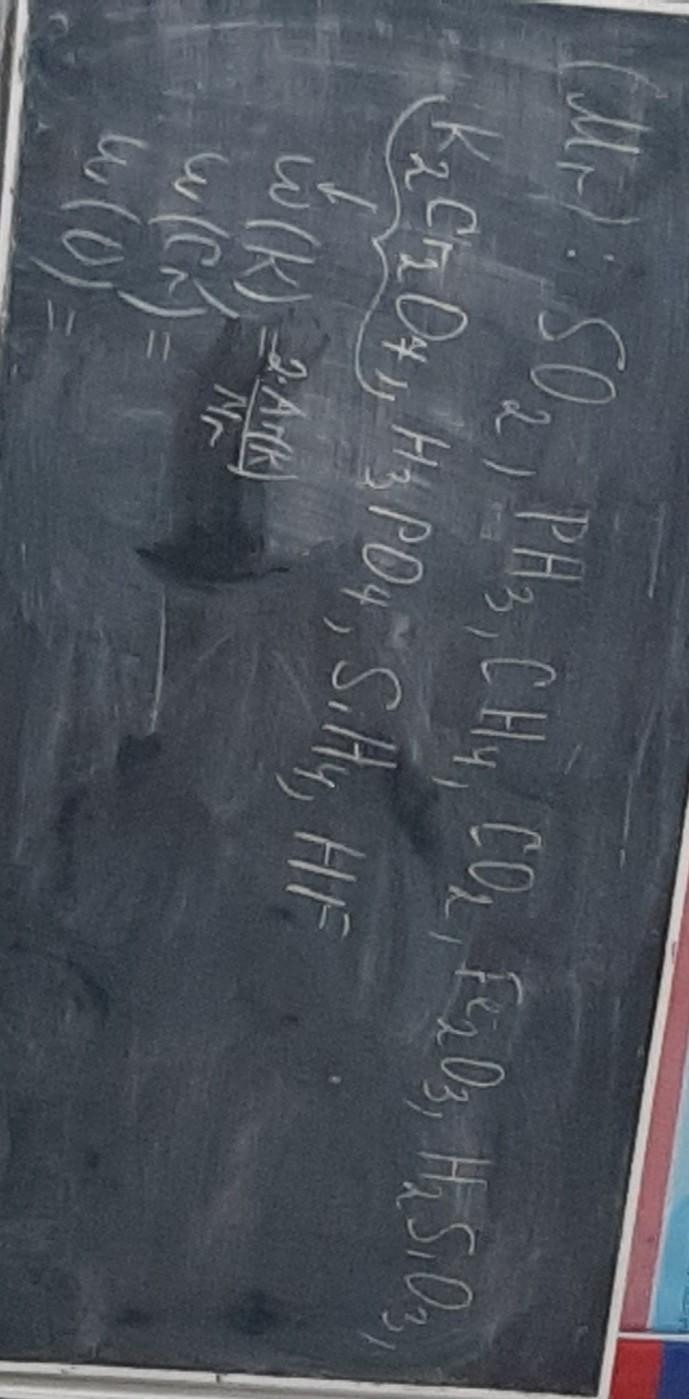 (Mr): SO2, PH3, CH4, CO2, Fe2O3, H2SiO3,
K2Cr2O7, H3PO4, SiH4, HF
w(K) = 2·Ar(K)/Mr
w(Cr) =
w(O) =